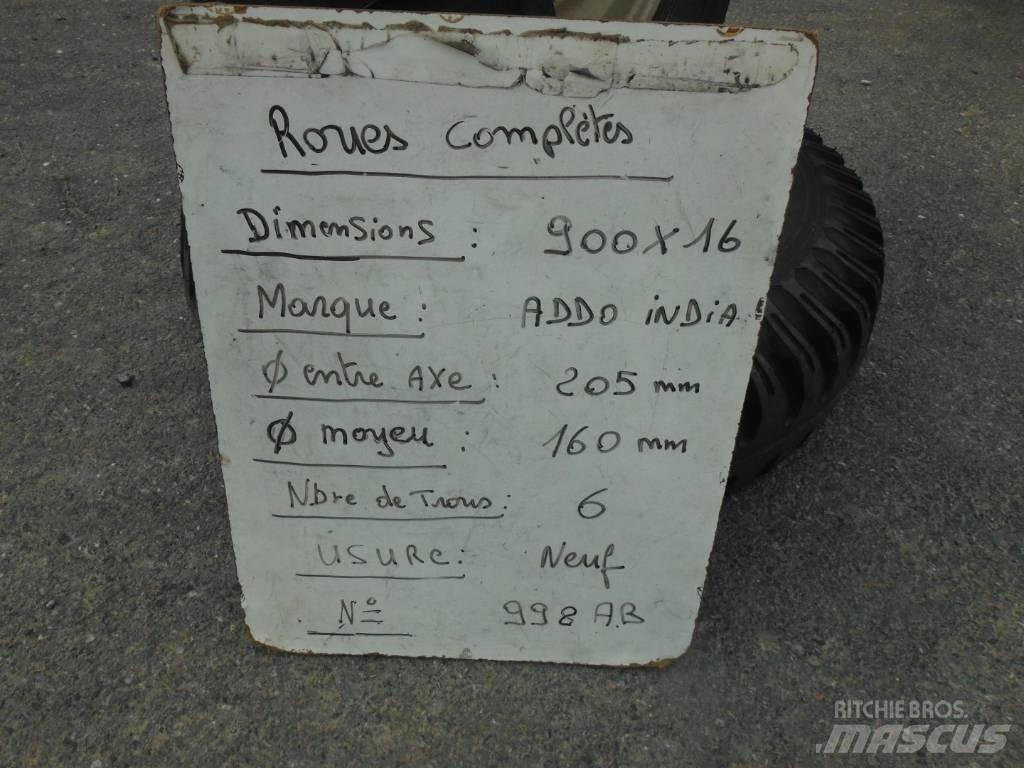 Roues complètes
Dimensions : 900X16
Marque : ADDO iNDiA
Ø entre AXe : 205 mm
Ø moyeu : 160 mm
Nbre de Trous : 6
USURE : Neuf
N° 998 A.B
RITCHIE BROS.
MASCUS